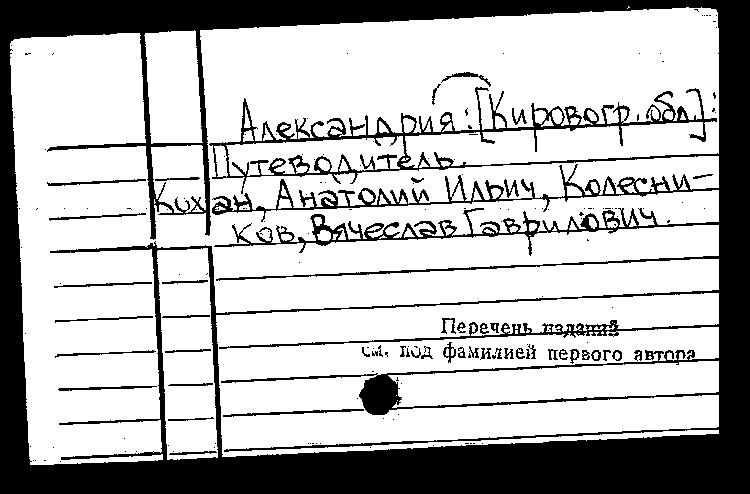 Александрия: [Кировогр. обл.]:
Путеводитель.
Кохан, Анатолий Ильич, Колесни-
ков, Вячеслав Гаврилович.
Перечень изданий
см. под фамилией первого автора